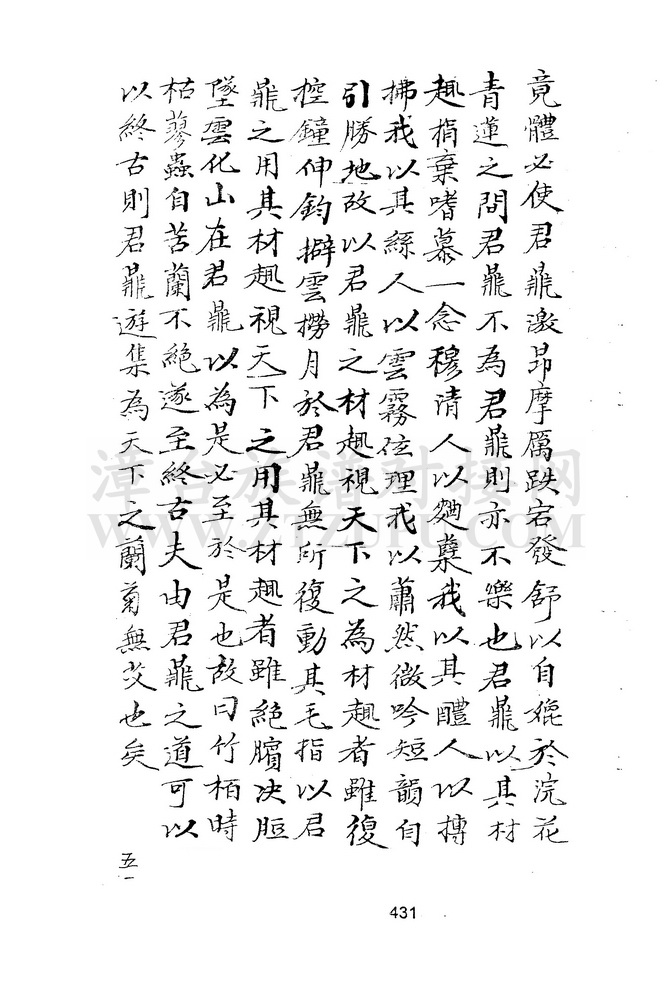 竟體必使君鼐激昂摩厲跌宕發舒以自媲於浣花
青蓮之間君鼐不為君鼐則亦不樂也君鼐以其材
趣捐棄嗜慕一念穆清人以麴櫱我以其醴人以摶
拂我以其絲人以雲霧位理我以蕭然微吟短韻自
引勝地故以君鼐之材趣視天下之為材趣者雖復
控鐘伸鈞擗雲撈月於君鼐無所復動其毛指以君
鼐之用其材趣視天下之用其材趣者雖絕臏决脰
墜雲化山在君鼐以為是必至於是也故曰竹栢時
枯蓼蟲自苦蘭不絕遂至終古夫由君鼐之道可以
以終古則君鼐遊集為天下之蘭菊無艾也矣
五一
431
漳台族譜對接網
WWW.ZTZUPU.COM